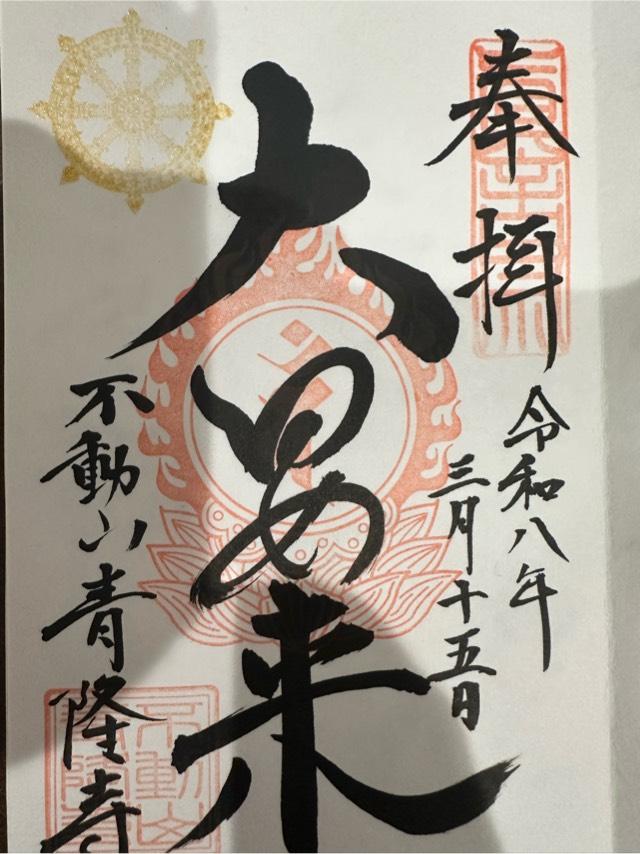 奉拝
令和八年
三月十五日
大日如来
不動山青隆寺
不動山